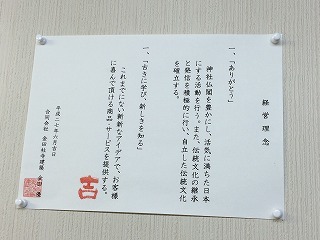 経営理念
一、「ありがとう」
神社仏閣を豊かにし、活気に満ちた日本
にする活動を行う。また、伝統文化の継承
と発信を積極的に行い、自立した伝統文化
を確立する。
一、「古きに学び、新しきを知る」
これまでにない斬新なアイデアで、お客様
に喜んで頂ける商品・サービスを提供する。
平成二七年六月吉日
合同会社
吉